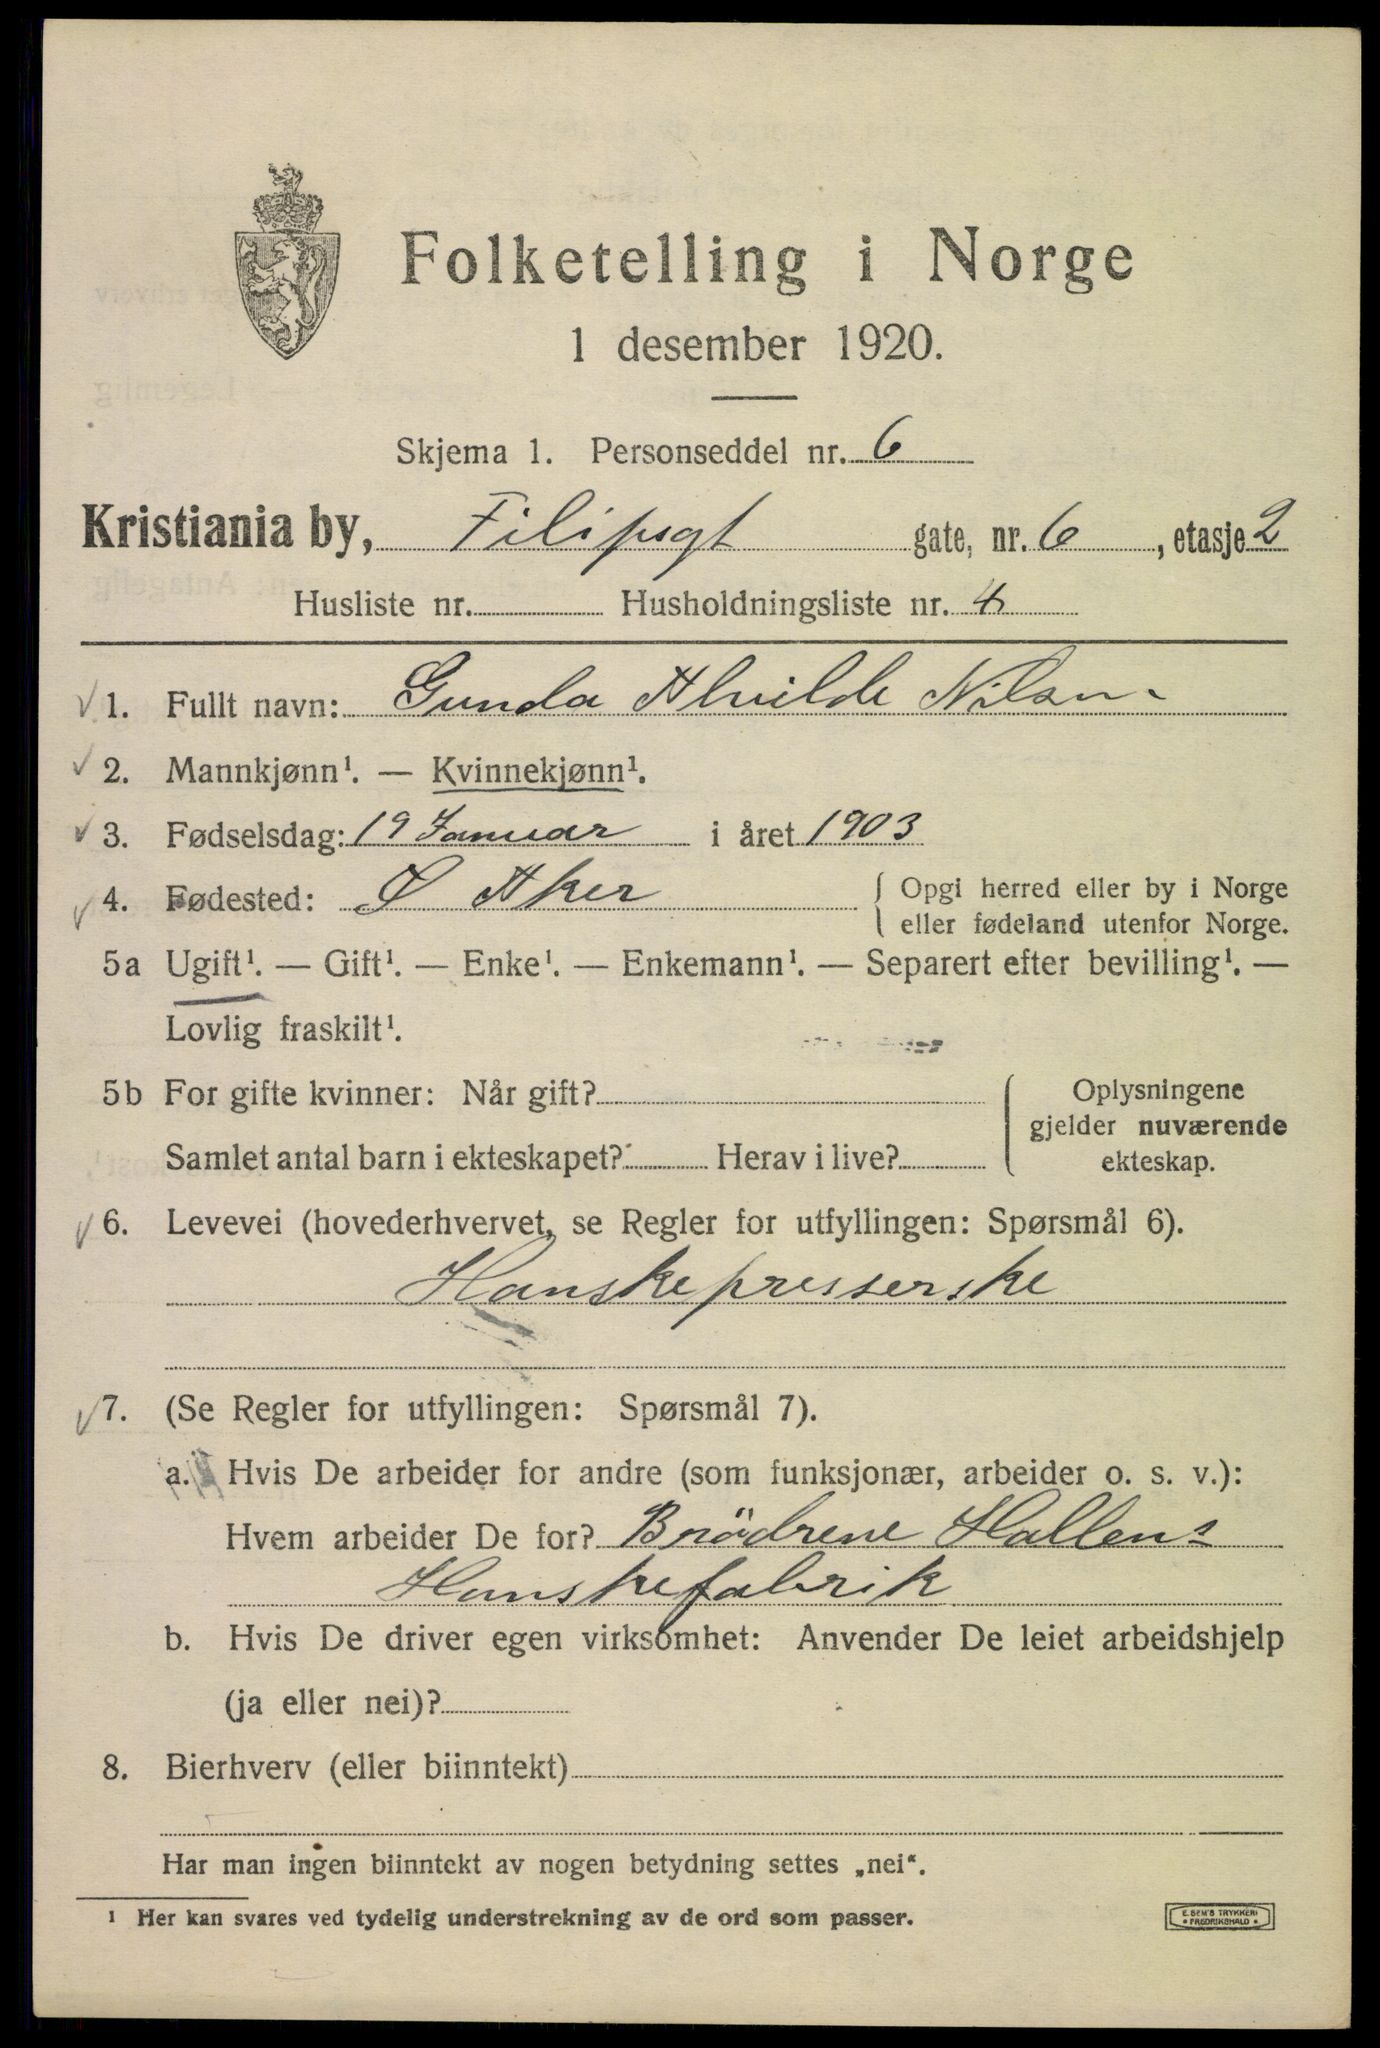 Folketelling i Norge
1 desember 1920.
Skjema 1. Personseddel nr. 6
Kristiania by, Filipsgt gate, nr. 6, etasje 2
Husliste nr. Husholdningsliste nr. 4
1. Fullt navn: Gunda Alvilde Nilsen
2. Mannkjønn¹. — Kvinnekjønn¹.
3. Fødselsdag: 19 Januar i året 1903
4. Fødested: Ø Aker { Opgi herred eller by i Norge
eller fødeland utenfor Norge.
5a Ugift¹. — Gift¹. — Enke¹. — Enkemann¹. — Separert efter bevilling¹. —
Lovlig fraskilt¹.
5b For gifte kvinner: Når gift? Oplysningene
gjelder nuværende
Samlet antal barn i ekteskapet? Herav i live? ekteskap.
6. Levevei (hovederhvervet, se Regler for utfyllingen: Spørsmål 6).
Hanskepresserske
7. (Se Regler for utfyllingen: Spørsmål 7).
a. Hvis De arbeider for andre (som funksjonær, arbeider o. s. v.):
Hvem arbeider De for? Brödrene Hallens
Hanskefabrik
b. Hvis De driver egen virksomhet: Anvender De leiet arbeidshjelp
(ja eller nei)?
8. Bierhverv (eller biinntekt)
Har man ingen biinntekt av nogen betydning settes „nei“.
¹ Her kan svares ved tydelig understrekning av de ord som passer.
E. SEM'S TRYKKERI
• FREDRIKSHALD •